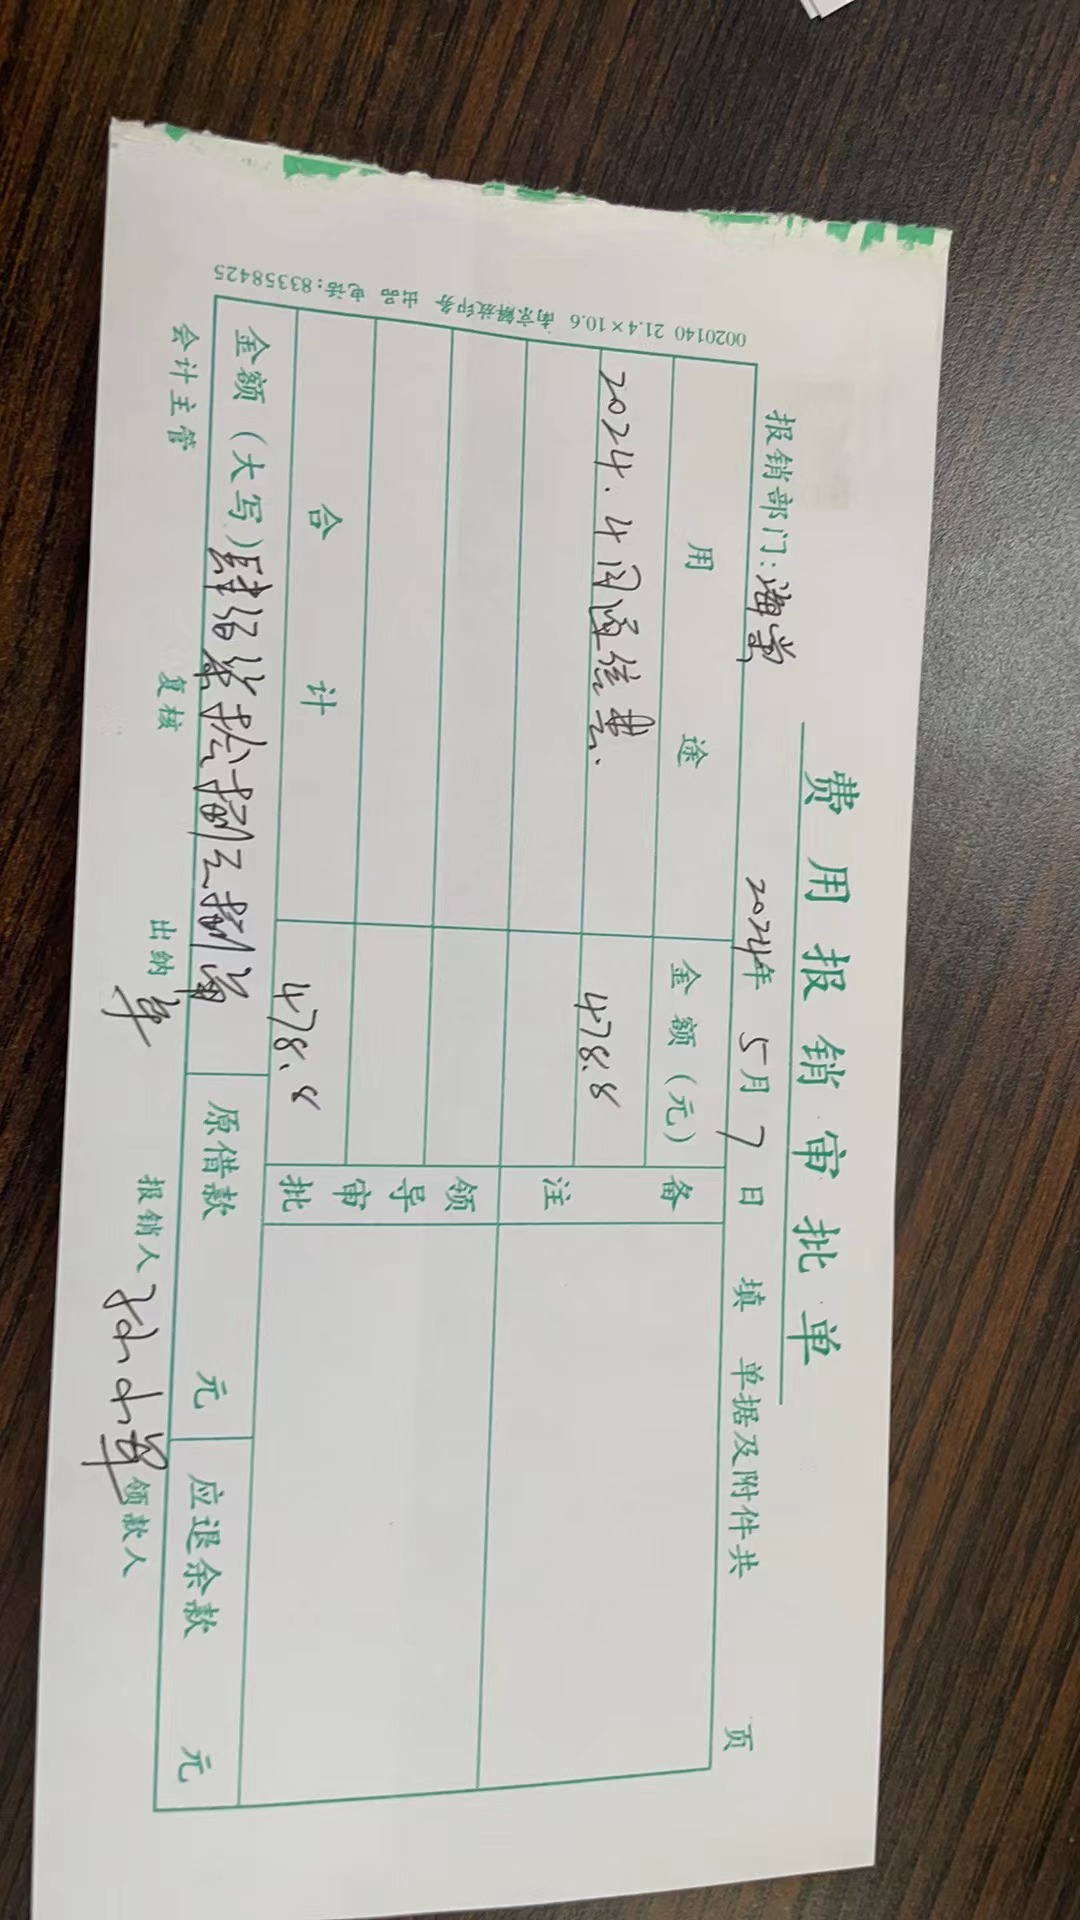 费用报销审批单
报销部门:海棠 2024年 5月 7日 填 单据及附件共 页
用途 金额(元) 备注
2024.4月通信费. 478.8
领导审批
合计 478.8
金额(大写)肆佰柒拾捌元捌角 原借款 元 应退余款 元
会计主管 复核 出纳 报销人 领款人
0020140 21.4×10.6 南京解放印务 出品 电话:83358425